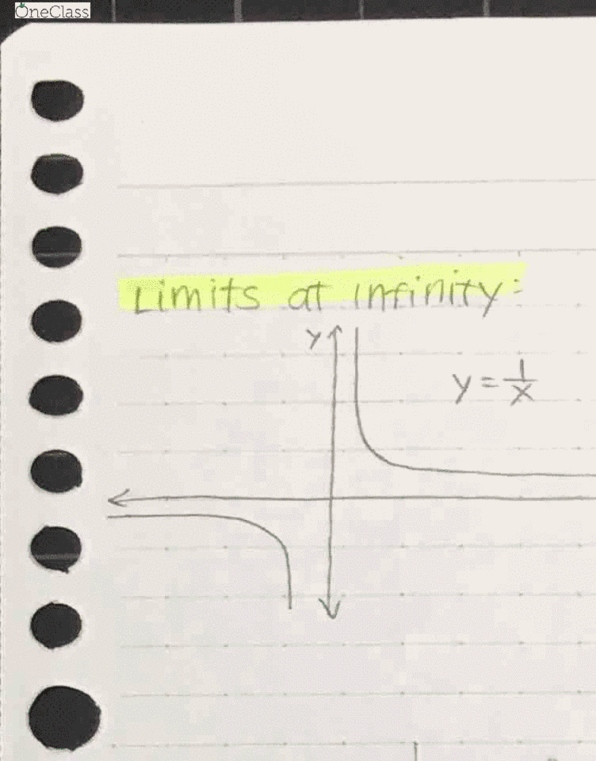 OneClass
Limits at infinity:
y
y = 1/x